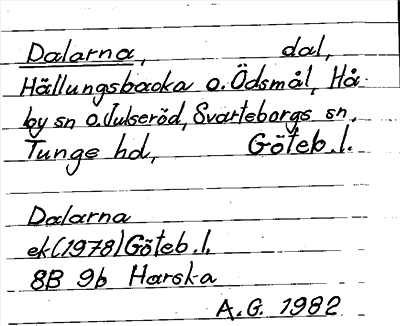 Dalarna, dal,
Hällungsbacka o. Ödsmål, Hå-
by sn o. Julseröd, Svarteborgs sn,
Tunge hd, Göteb. l.
Dalarna
ek (1978) Göteb. l.
8B 9b Harska
A.G. 1982